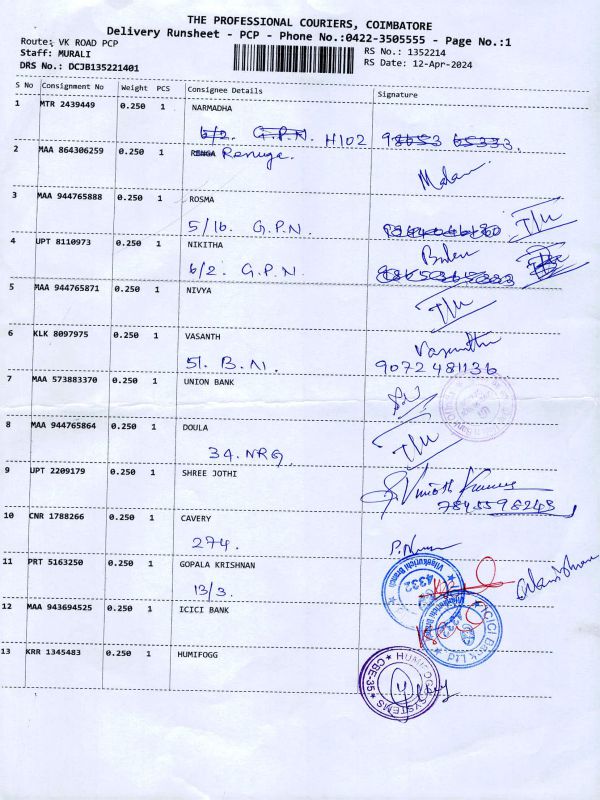 THE PROFESSIONAL COURIERS, COIMBATORE
Delivery Runsheet - PCP - Phone No.:0422-3505555 - Page No.:1
Route: VK ROAD PCP
Staff: MURALI
DRS No.: DCJB135221401
RS No.: 1352214
RS Date: 12-Apr-2024
S No Consignment No Weight PCS Consignee Details Signature
1 MTR 2439449 0.250 1 NARMADHA
6/2. G.P.N. H102
2 MAA 864306259 0.250 1 RENGA Renuga.
3 MAA 944765888 0.250 1 ROSMA
5/16. G.P.N. I/U
4 UPT 8110973 0.250 1 NIKITHA
6/2. G.P.N.
5 MAA 944765871 0.250 1 NIVYA I/U
6 KLK 8097975 0.250 1 VASANTH Vasanth
51. B.N. 9072481136
7 MAA 573883370 0.250 1 UNION BANK
8 MAA 944765864 0.250 1 DOULA I/U
34. NRG.
9 UPT 2209179 0.250 1 SHREE JOTHI
7845598243
10 CNR 1788266 0.250 1 CAVERY
274.
11 PRT 5163250 0.250 1 GOPALA KRISHNAN
13/3.
Vilankurichi Branch
4332
12 MAA 943694525 0.250 1 ICICI BANK
ICICI Bank Ltd
4332
13 KRR 1345483 0.250 1 HUMIFOGG
HUMIFOGG SYSTEMS
CBE-35